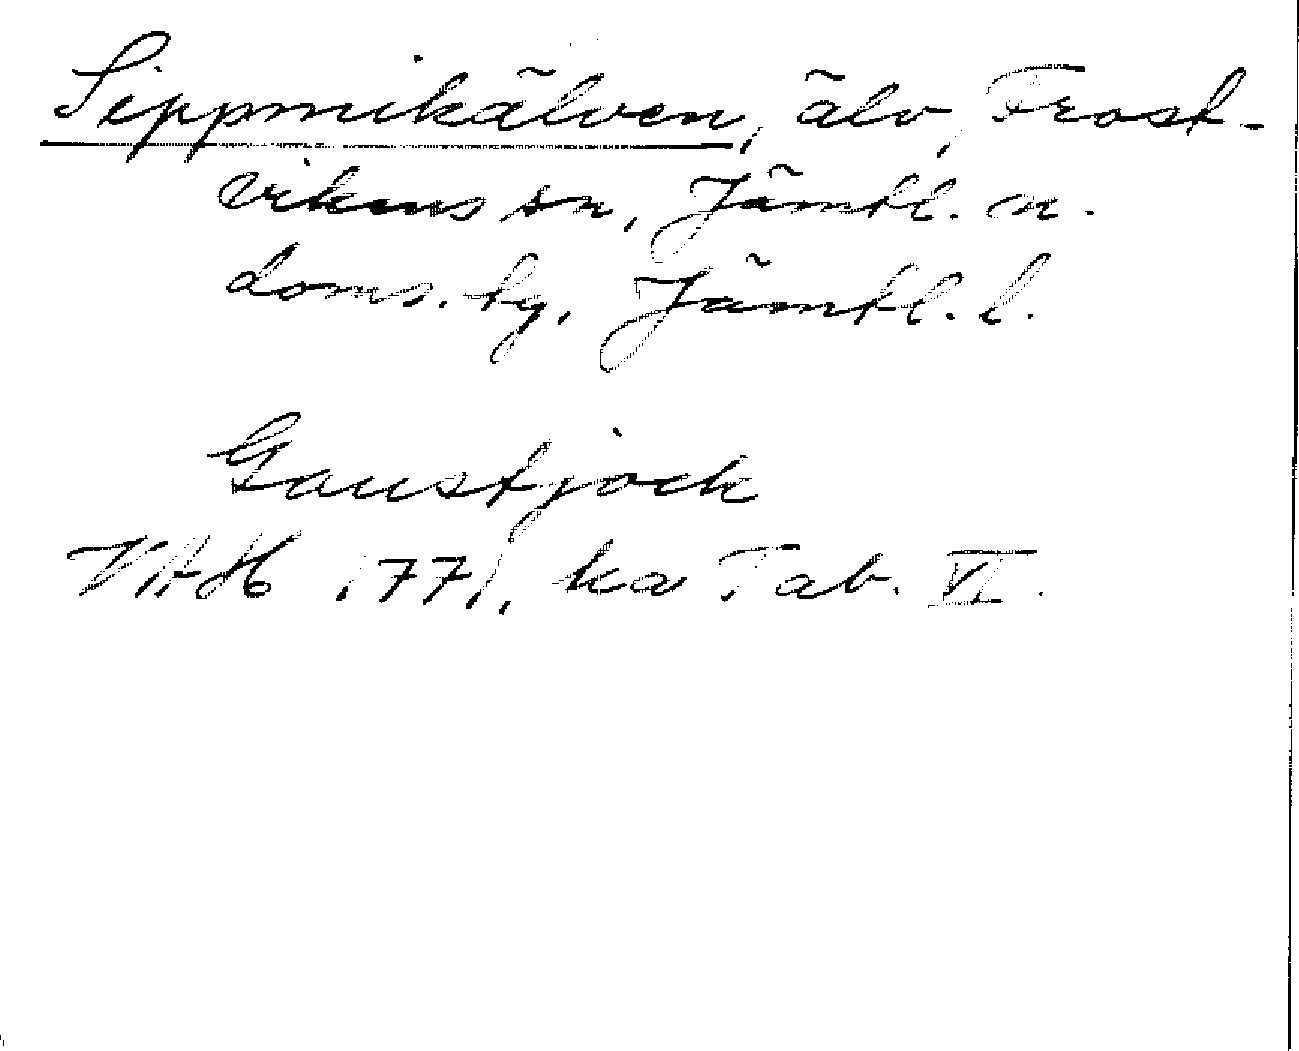 Sippmikälven, älv, Frost-
vikens sn, Jämtl. n.
doms. tg, Jämtl. l.
Gaustjock
VAH 1771, ka Tab. VI.